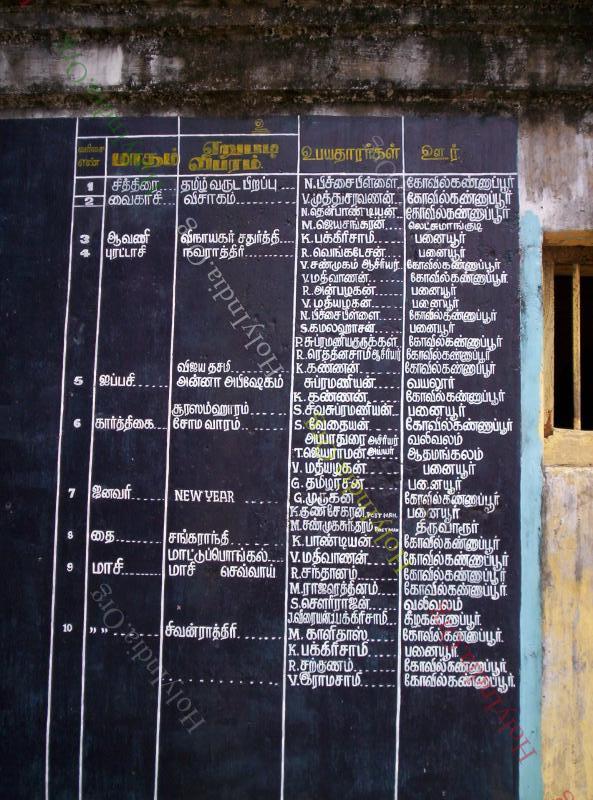 உ
வரிசை எண் மாதம் விபரம். உபயதாரர்கள் ஊர்
1 சித்திரை தமிழ் வருட பிறப்பு N.பிச்சைபிள்ளை கோவில்கண்ணுப்பூர்
2 வைகாசி விசாகம் V.முத்துசரவணன் கோவில்கண்ணுப்பூர்
N.தென்பாண்டியன் கோவில்கண்ணுப்பூர்
M.ஜெயசங்கரன் லெட்சுமாங்குடி
3 ஆவணி வினாயகர் சதுர்த்தி K.பக்கிரிசாமி பனையூர்
4 புரட்டாசி நவராத்திரி R.வெங்கடேசன் பனையூர்
V.சண்முகம் ஆசிரியர் கோவில்கண்ணுப்பூர்
V.மதிவாணன் கோவில்கண்ணுப்பூர்
R.அன்பழகன் பனையூர்
V.மதியழகன் பனையூர்
N.பிச்சைபிள்ளை கோவில்கண்ணுப்பூர்
S.கமலஹாசன் பனையூர்
P.சுப்ரமணியகுருக்கள் கோவில்கண்ணுப்பூர்
R.ரெத்தினசாமி ஆசிரியர் கோவில்கண்ணுப்பூர்
விஜய தசமி K.கண்ணன் கோவில்கண்ணுப்பூர்
5 ஐப்பசி அன்னா அபிஷேகம் சுப்ரமணியன் வயலூர்
K.கண்ணன் கோவில்கண்ணுப்பூர்
சூரஸம்ஹாரம் S.சிவசுப்ரமணியன் பனையூர்
6 கார்த்திகை சோம வாரம் S.வேதையன் கோவில்கண்ணுப்பூர்
அப்பாதுரை ஆசிரியர் வலிவலம்
T.ஜெயராமன் அய்யர் ஆதமங்கலம்
V.மதியழகன் பனையூர்
G.தமிழரசன் பனையூர்
7 ஜனவரி NEW YEAR G.முருகன் கோவில்கண்ணுப்பூர்
K.தனசேகரன் POST MAN பனையூர்
M.சண்முகசுந்தரம் திருவாரூர்
8 தை சங்கராந்தி K.பாண்டியன் கோவில்கண்ணுப்பூர்
மாட்டுப்பொங்கல் V.மதிவாணன் கோவில்கண்ணுப்பூர்
9 மாசி மாசி செவ்வாய் R.சந்தானம் கோவில்கண்ணுப்பூர்
M.ராஜரத்தினம் கோவில்கண்ணுப்பூர்
S.சௌரிராஜன் வலிவலம்
கீழகண்ணுப்பூர்
10 " " சிவன்ராத்திரி M.காளிதாஸ் கோவில்கண்ணுப்பூர்
K.பக்கிரிசாமி பனையூர்
R.சற்குணம் கோவில்கண்ணுப்பூர்
V.இராமசாமி கோவில்கண்ணுப்பூர்
HolyIndia.Org